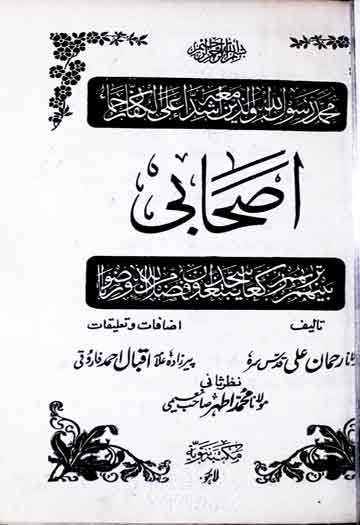 بسم الله الرحمن الرحيم
محمد رسول الله والذين معه اشداء على الكفار رحما
اصحابی
بينهم تريهم ركعا سجدا يبتغون فضلا من الله ورضوانا
تالیف
اضافات و تعلیقات
رحمان علی قدس سرہ
پیرزادہ علامہ اقبال احمد فاروقی
نظرثانی
مولانا محمد اطہر صاحب نعیمی
مکتبہ نبویہ
لاہور